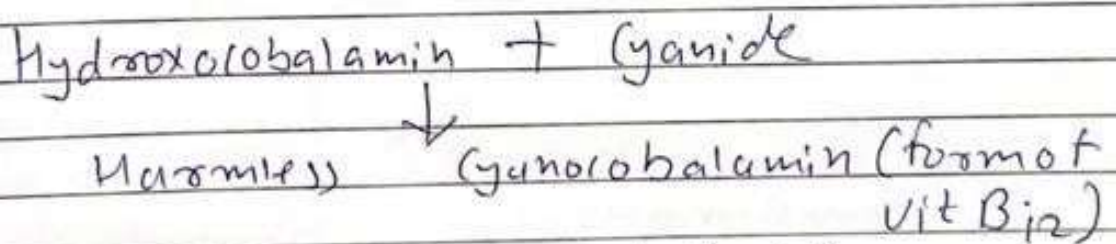 Hydroxocobalamin + Cyanide
↓
Harmless Cyanocobalamin (form of
vit B12)